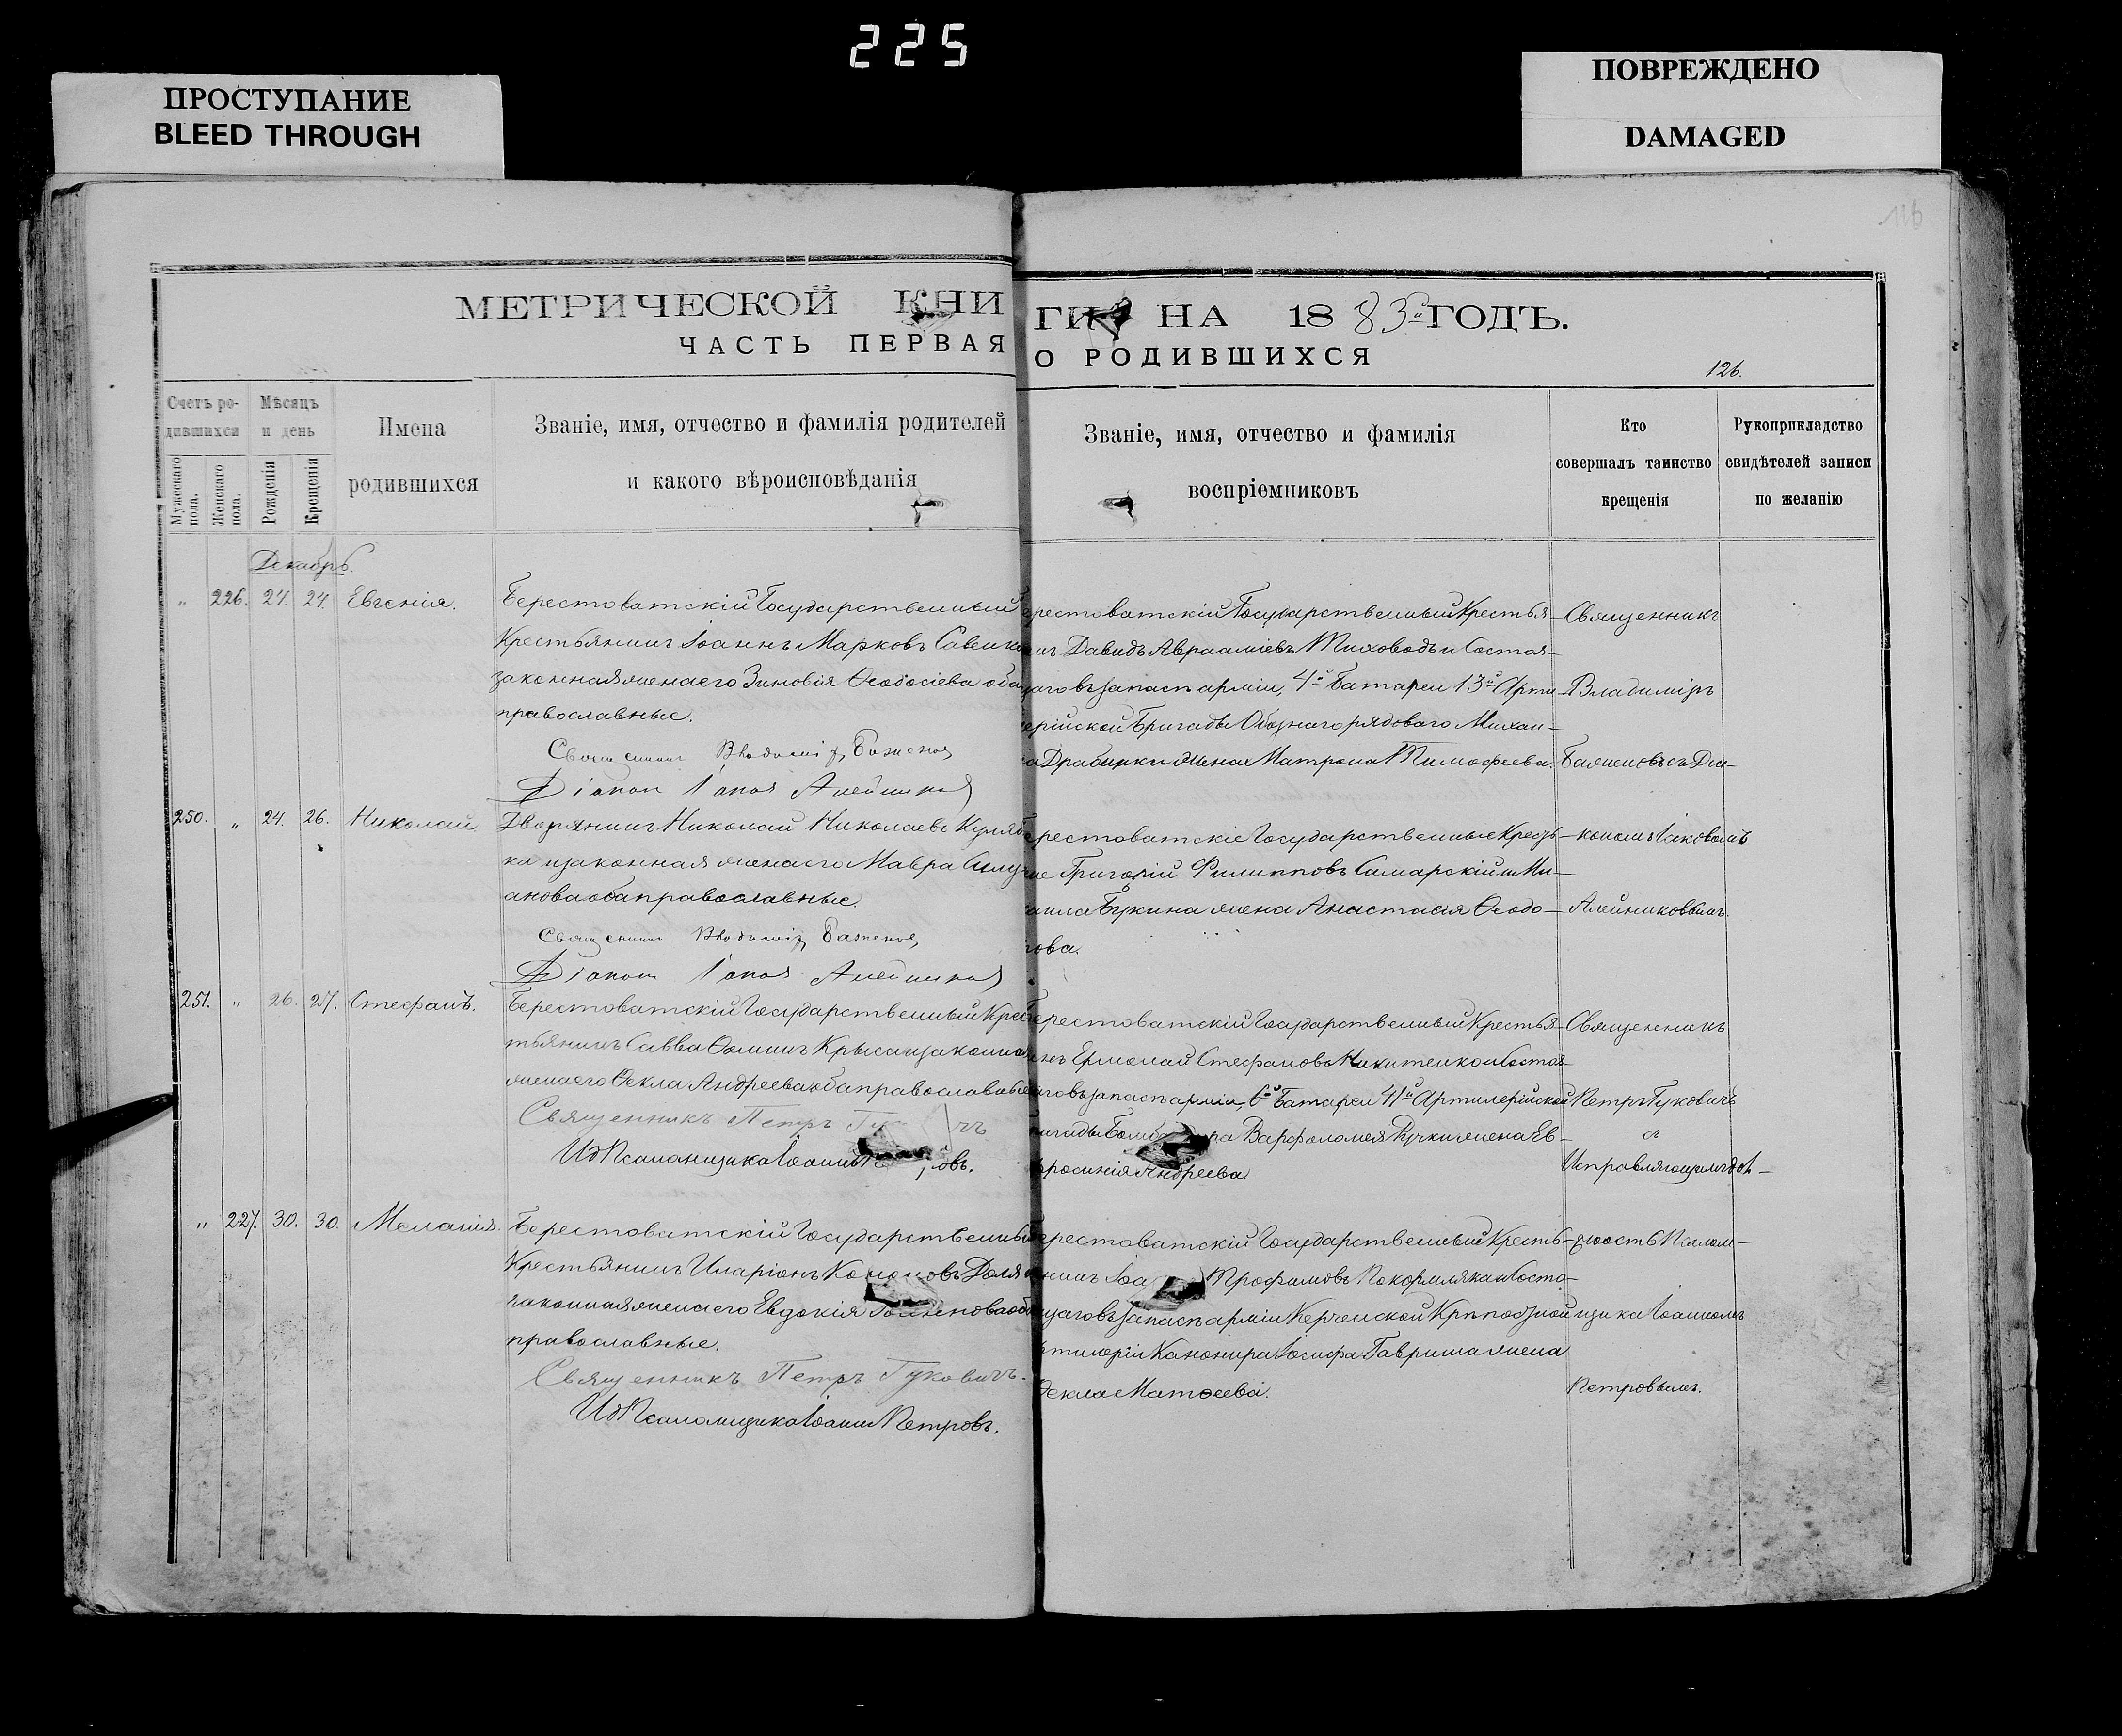 225
ПРОСТУПАНИЕ
BLEED THROUGH
ПОВРЕЖДЕНО
DAMAGED
116
МЕТРИЧЕСКОЙ КНИ
ГИ НА 1883й ГОДЪ.
ЧАСТЬ ПЕРВАЯ
О РОДИВШИХСЯ
126.
Счетъ ро-
дившихся
Мужескаго пола.
Женскаго пола.
Мѣсяцъ
и день
Рожденія
Крещенія
Имена
родившихся
Званіе, имя, отчество и фамилія родителей
и какого вѣроисповѣданія
Званіе, имя, отчество и фамилія
воспріемниковъ
Кто
совершалъ таинство
крещенія
Рукоприкладство
свидѣтелей записи
по желанію
Декабрь.
„ 226. 24. 24. Евгенія.
Берестоватскій Государственный
Крестьянинъ Іоаннъ Марковъ
законная жена его Зиновія Ѳеодосіева оба
православные.
Священникъ Владиміръ Баженовъ
Діаконъ Іаковъ Алейниковъ
ерестоватскій Государственный Крестья-
нъ Давидъ Авраамієвъ Тиховодъ и Состоя-
щаго въ запасѣ арміи, 4й Батареи 13й Арти-
ерійской Бригады Обознаго рядового Михаи-
жена Матрона Тимофеева.
Священникъ
Владиміръ
Баженовъ съ Діа-
250. „ 24. 26. Николай
Дворянинъ Николай Николаевъ
ка и законная жена его Мавра
анова оба православные.
Священникъ Владиміръ Баженовъ
Діаконъ Іаковъ Алейниковъ
ерестоватскіе Государственные Кресть-
не Григорій Филипповъ Самарскій и Ми-
хаила Букина жена Анастасія Ѳеодо-
това.
кономъ Іаковомъ
Алейниковымъ.
251. „ 26. 27. Стефанъ.
Берестоватскій Государственный Крес
тьянинъ Савва Ѳоминъ Крыса и законная
жена его Ѳекла Андреева оба православные
Священникъ Петръ
ИдПсаломщика Іоаннъ овъ.
Берестоватскій Государственный Крестья-
нъ Ермолай Стефановъ Никитенко и Состоя-
щаго въ запасѣ арміи, 6й Батареи 41й Артилерійской
ригады Варфоломея жена Ев-
фросинія Андреева
Священникъ
Петръ Гуковичъ
съ
Исправляющимъ дол-
„ 227. 30. 30. Меланія.
Берестоватскій Государственный
Крестьянинъ Иларіонъ Кононовъ Доля
законная жена его Евдокія Іоаннова оба
православные.
Священникъ Петръ Гуковичъ.
ИдПсаломщика Іоаннъ Петровъ.
ерестоватскій Государственный Кресть-
янинъ Іоа Трофимовъ Покормляка и Состо-
щаго въ запасѣ арміи Керченской Крѣпостной
ртилеріи Канонира Іосифа Гавриша жена
Ѳекла Матѳеева.
жность Псалом-
щика Іоанномъ
Петровымъ.